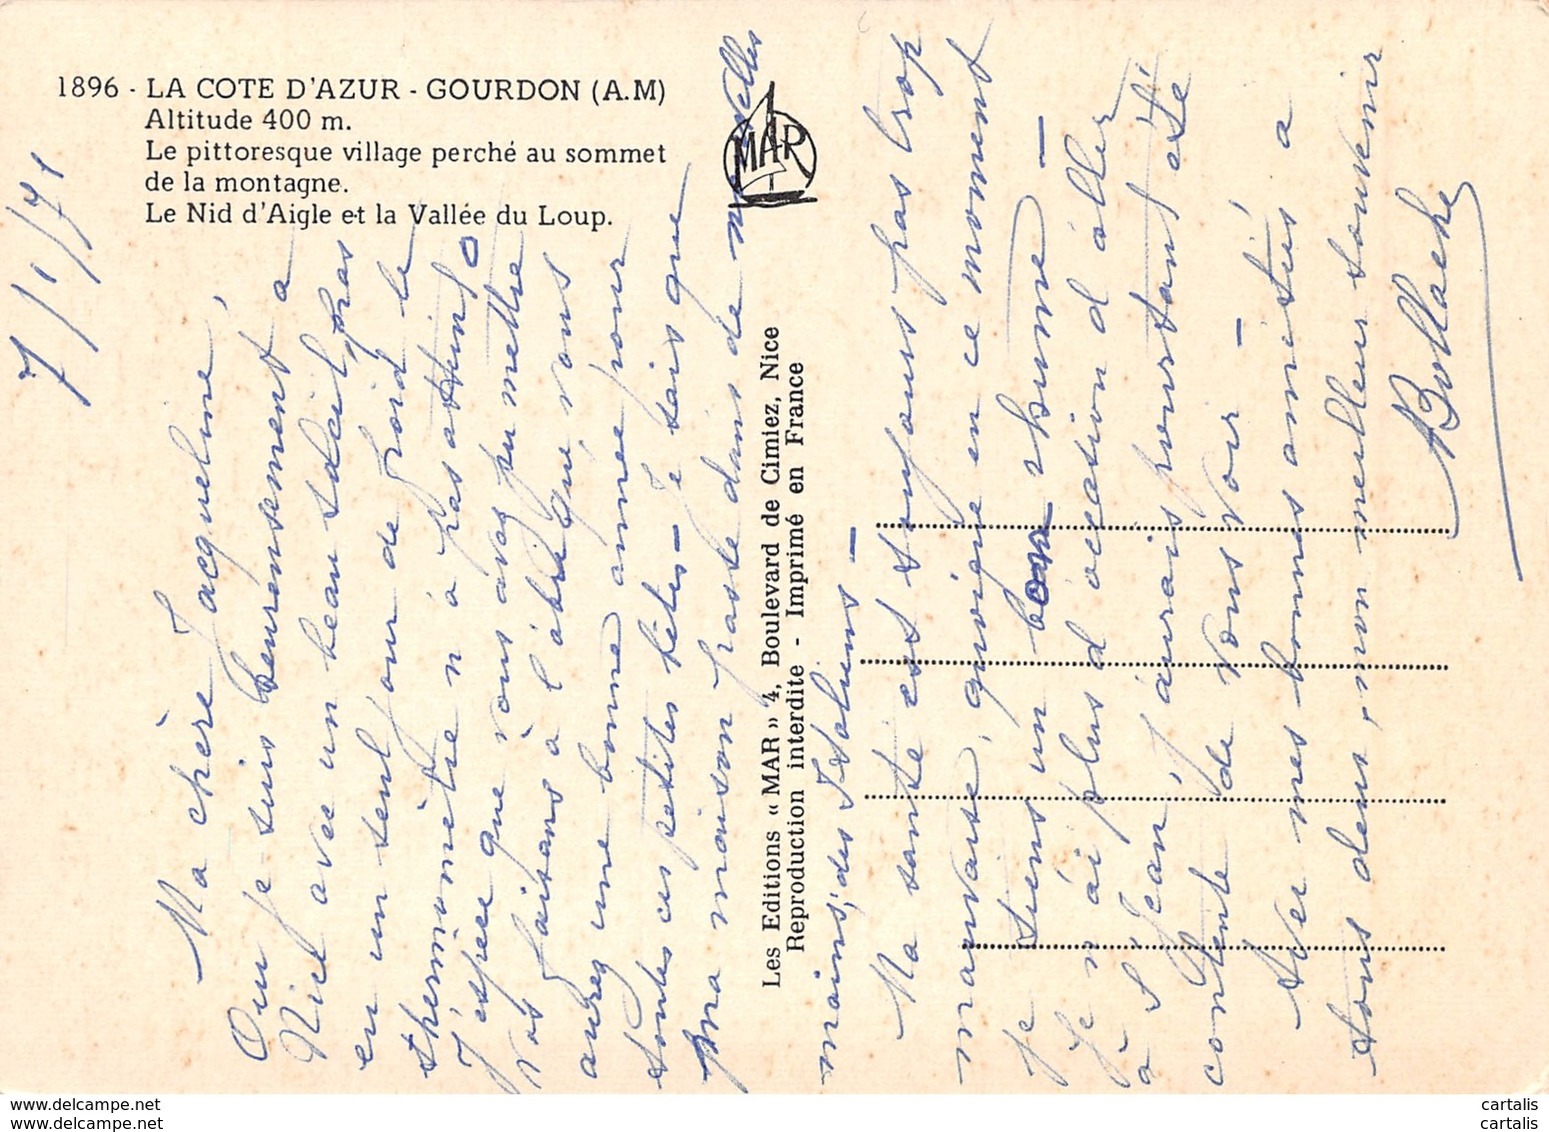 1896 - LA COTE D'AZUR - GOURDON (A.M)
Altitude 400 m.
Le pittoresque village perché au sommet
de la montagne.
Le Nid d'Aigle et la Vallée du Loup.
MAR
Les Editions « MAR » 4, Boulevard de Cimiez, Nice
Reproduction interdite - Imprimé en France
7/1/71
Ma chère Jacqueline,
Oui je suis heureusement à
Nice avec un beau soleil, pas
eu un seul jour de froid le
thermomètre n'a pas atteint 0
J'espère que vous avez pu mettre
vos faisans à l'abri que vous
aurez une bonne année pour
toutes ces petites bêtes - Je sais que
ma maison passe dans de nouvelles
mains, des Italiens -
Ma santé est toujours pas trop
mauvaise, quoique en ce moment
je tiens un bon rhume -
Je n'ai plus d'occasion d'aller
à St Jean, j'aurais pourtant été
contente de vous voir -
Avec mes bonnes amitiés à
tous deux, mon meilleur souvenir
cartalis
cartalis
www.delcampe.net
www.delcampe.net